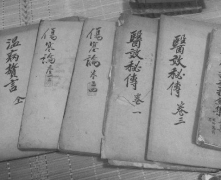 醫效秘傳 卷三
醫效秘傳 卷一
傷寒論
傷寒論
溫病贅言 全